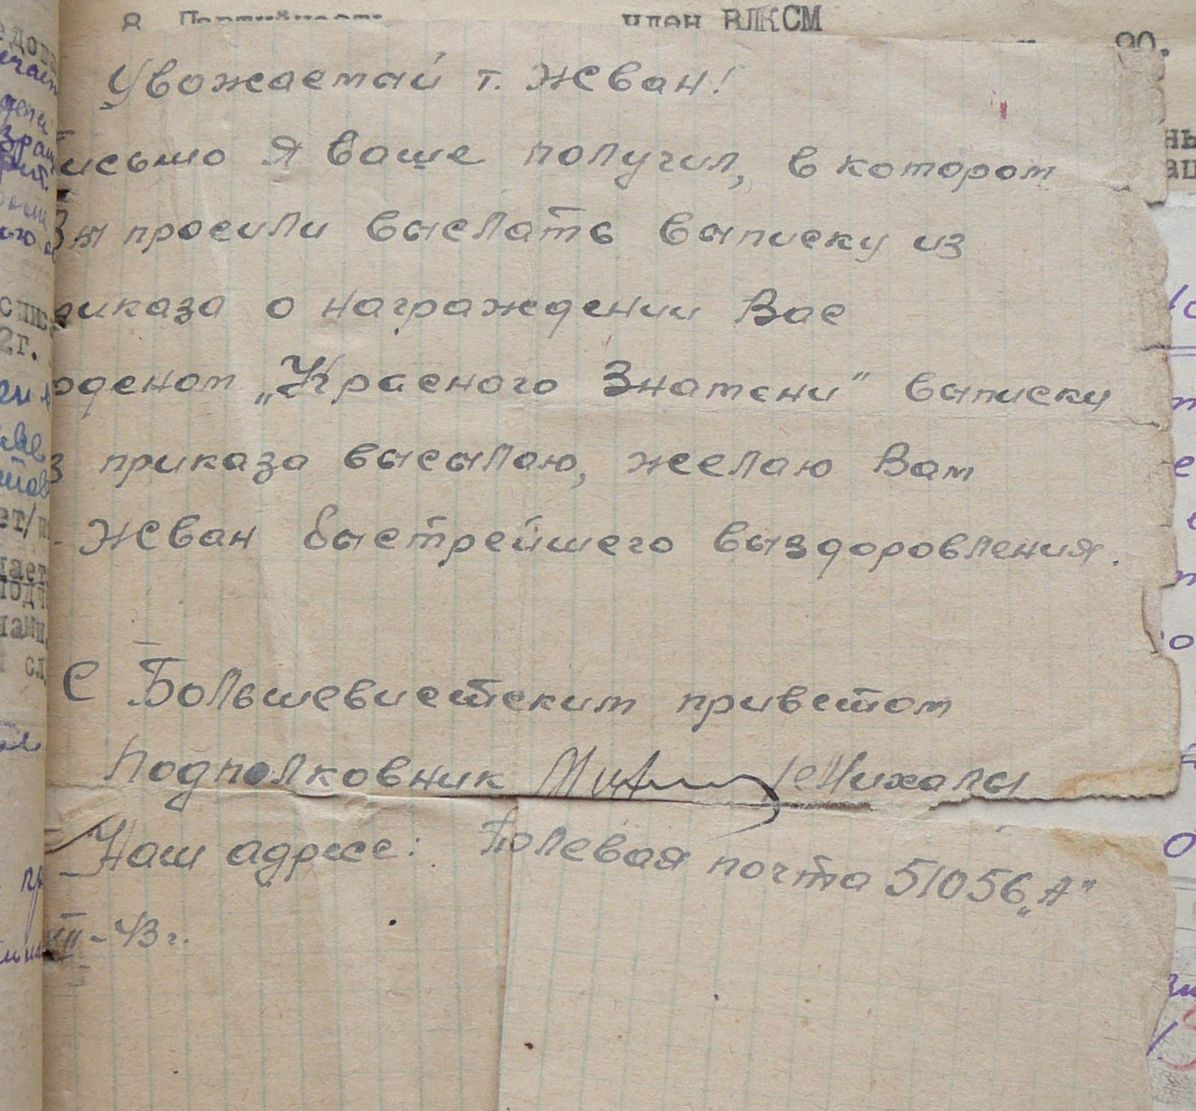 член ВЛКСМ
90.
Уважаемый т. Жеван!
исьмо я ваше получил, в котором
Вы просили выслать выписку из
риказа о награждении Вас
рденом „Красного Знамени" выписку
з приказа высылаю, желаю Вам
Жеван быстрейшего выздоровления.
С Большевистским приветом
Подполковник
Наш адрес: Полевая почта 51056 „А"
-43 г.